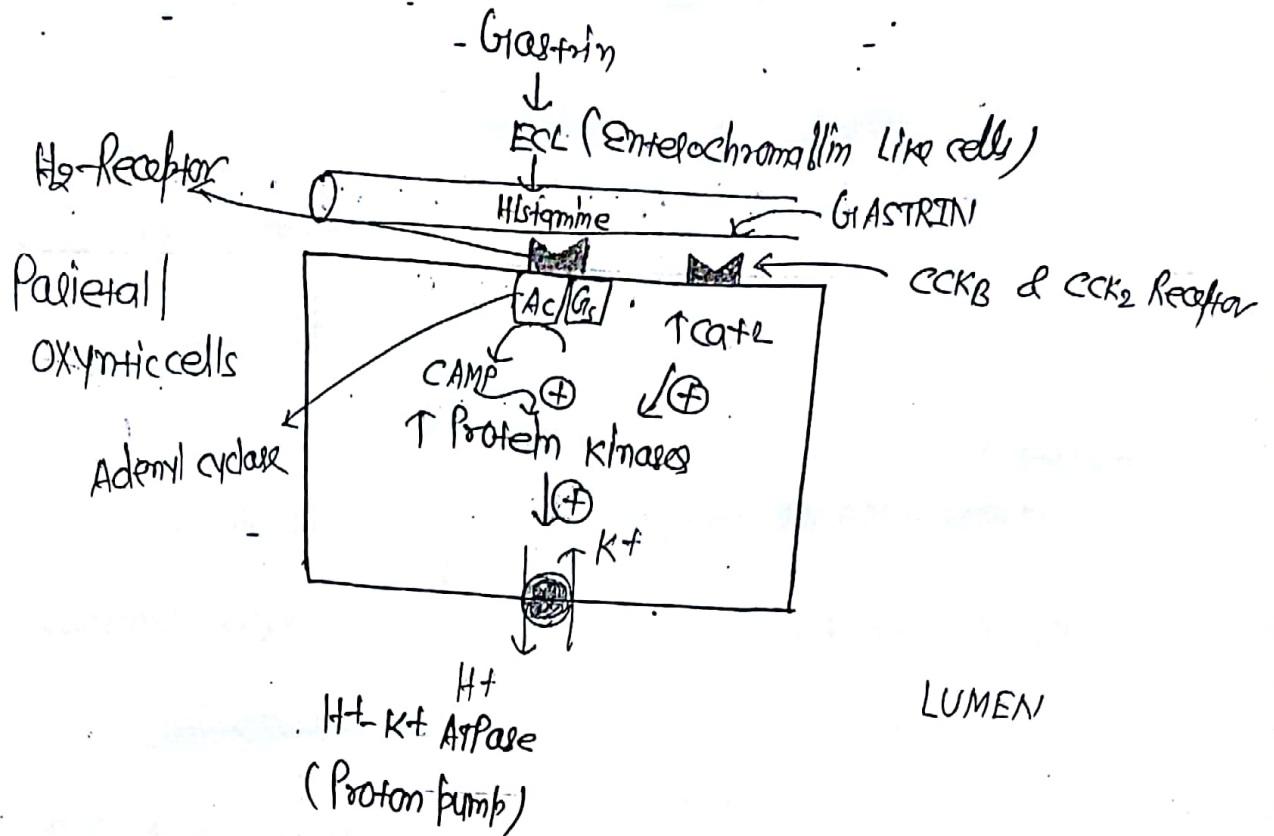 Gastrin
ECL (Enterochromaffin Like cells)
H2-Receptor
Histamine
GASTRIN
Parietal/
Oxyntic cells
AC Gs
CCKB & CCK2 Receptor
↑ Ca+2
CAMP
+
+
↑ Protein Kinases
Adenyl cyclase
+
K+
H+
H+-K+ ATPase
(Proton pump)
LUMEN